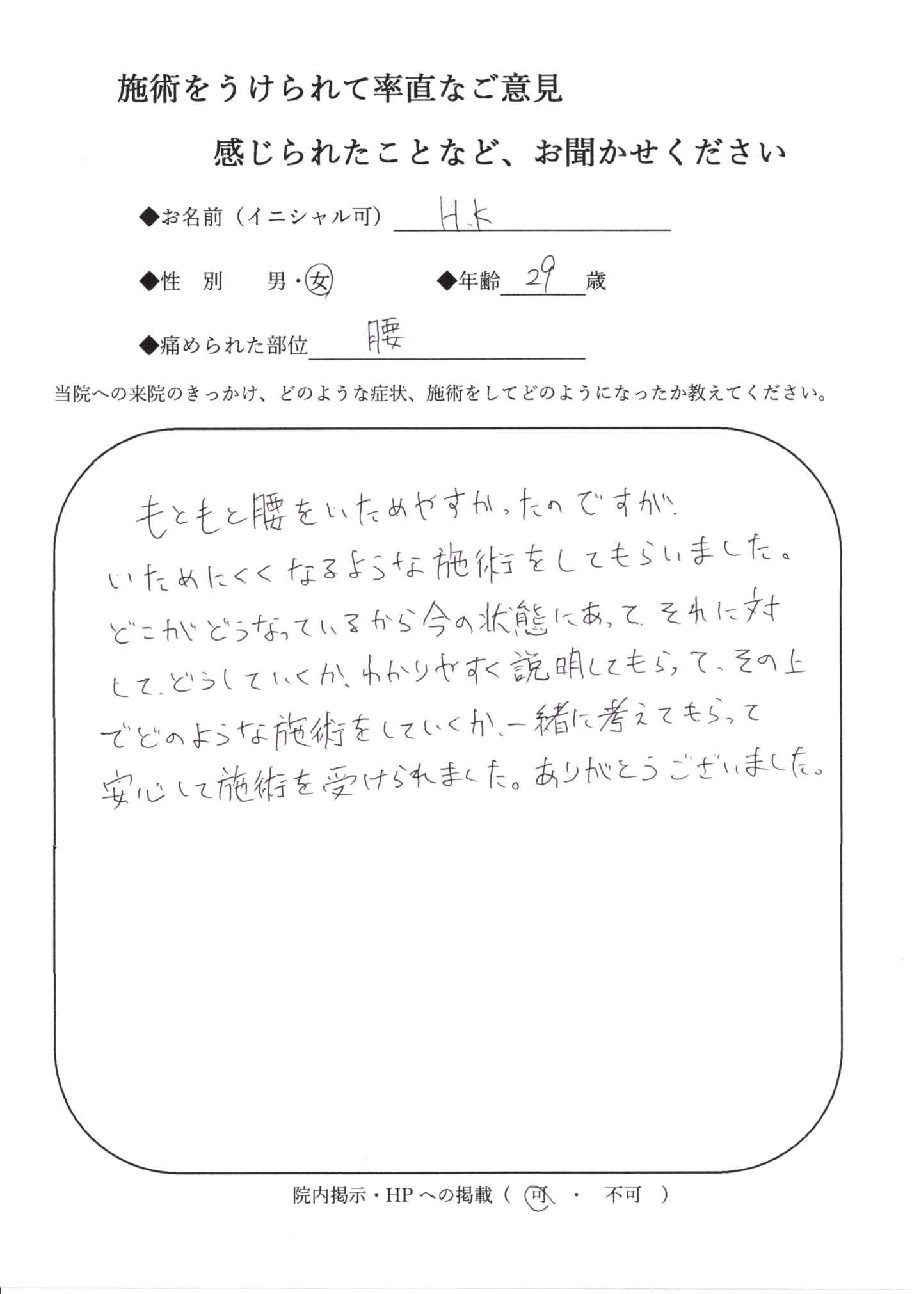 施術をうけられて率直なご意見
感じられたことなど、お聞かせください
◆お名前（イニシャル可） H.K
◆性　別　　男・女　　◆年齢 29 歳
◆痛められた部位 腰
当院への来院のきっかけ、どのような症状、施術をしてどのようになったか教えてください。
もともと腰をいためやすかったのですが、
いためにくくなるような施術をしてもらいました。
どこがどうなっているから今の状態にあって、それに対
して、どうしていくか、わかりやすく説明してもらって、その上
でどのような施術をしていくか、一緒に考えてもらって
安心して施術を受けられました。ありがとうございました。
院内掲示・HPへの掲載（　可　・　不可　）